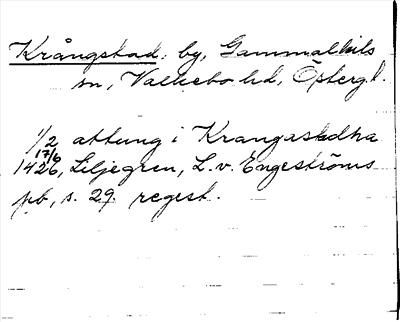 Krångstad: by, Gammalkils
sn, Valkebo hd, Östergl.
1/2 attung i Krangastadha
17/6 1426, Liljegren, L. v. Engeströms
pb, s. 29. regest.